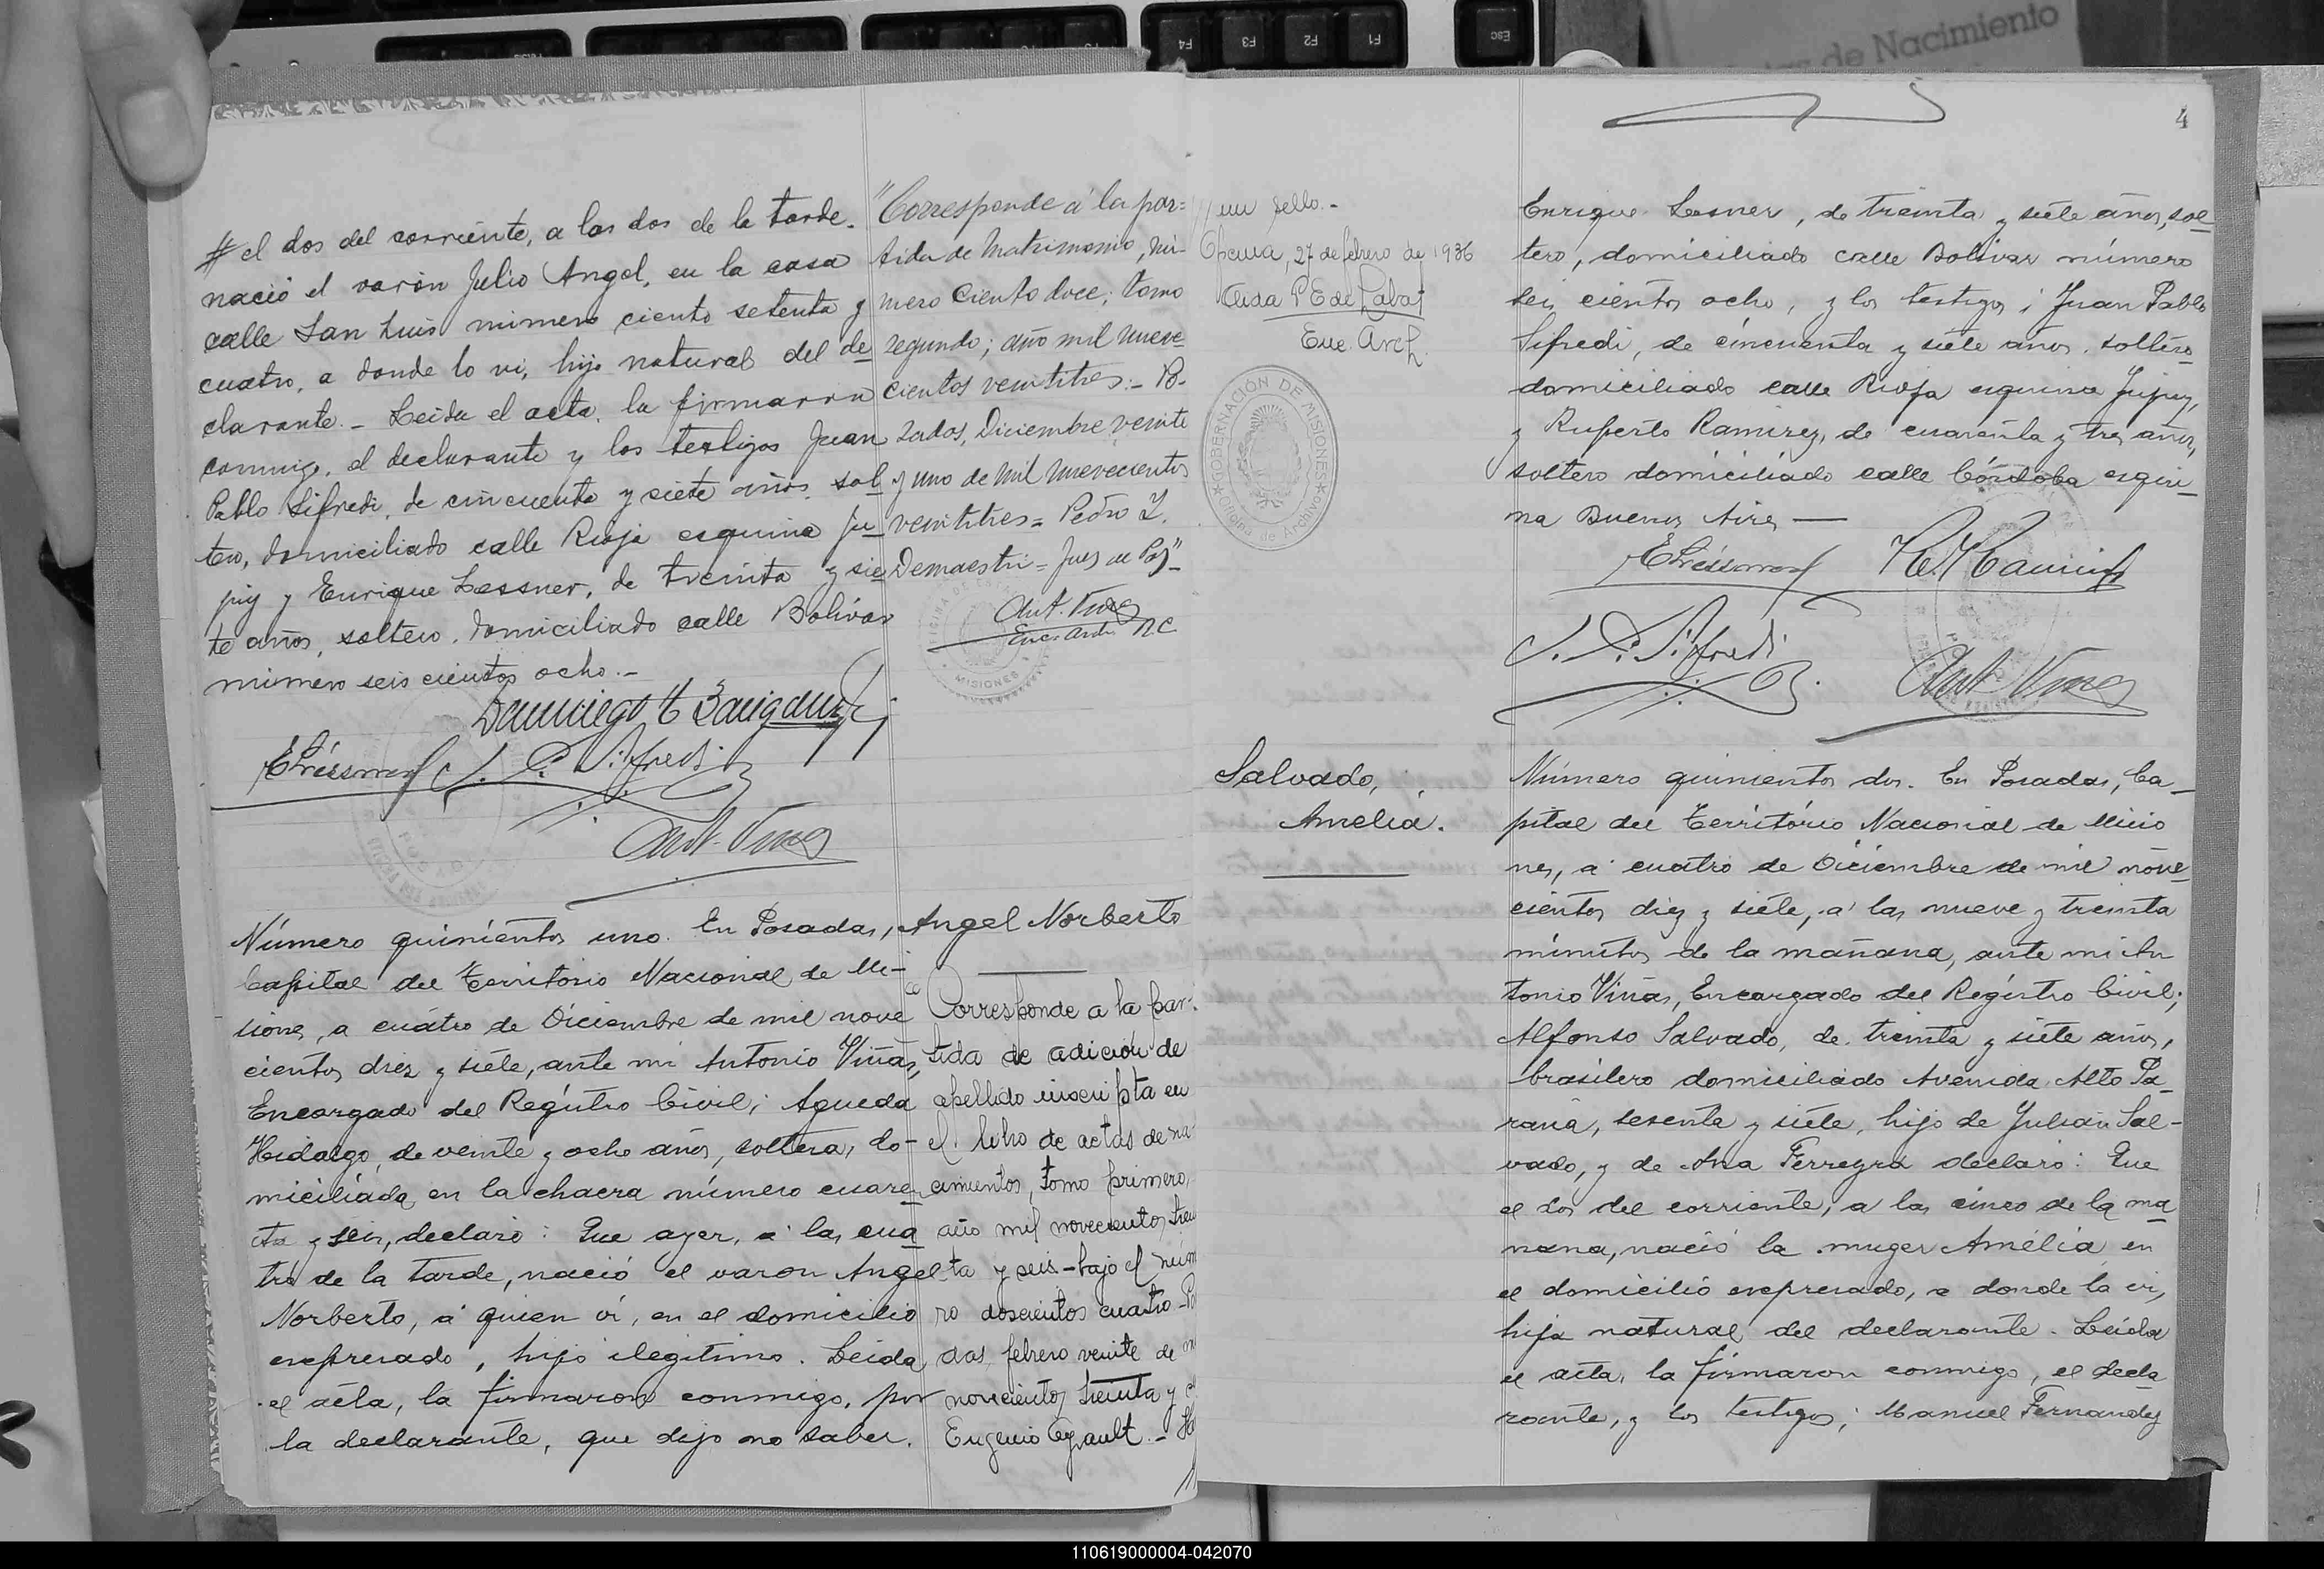 F4
F3
F2
F1
Esc
de Nacimiento
el dos del corriente, a las dos de la tarde.
nació el varón Julio Angel, en la casa
calle San Luis número ciento setenta y
cuatro, a donde lo vi, hijo natural del de
clarante.- Leida el acta, la firmaron
conmigo, el declarante y los testigos Juan
Pablo Sifredi, de cincuenta y siete años, sol
tero, domiciliado calle Rioja esquina Ju
juy y Enrique Lessner, de treinta y sie
te años, soltero, domiciliado calle Bolívar
número seis cientos ocho.-
J. P. Sifredi
Ant. Viñas
"Corresponde á la par=
tida de Matrimonio, nú-
mero ciento doce; tomo
segundo; año mil nueve
cientos veintitres.- Po-
sadas, Diciembre veinte
y uno de mil nuevecientos
veintitres = Pedro I.
Demaestri = Juez de Paz"-
Ant. Viñas
Enc. Arch. R.C.
MISIONES
Número quinientos uno. En Posadas,
Capital del Territorio Nacional de Mi-
siones, a cuatro de Diciembre de mil nove
cientos diez y siete, ante mi Antonio Viñas,
Encargado del Registro Civil; Agueda
Hidalgo, de veinte y ocho años, soltera, do-
miciliada en la chacra número cuaren
ta y seis, declaró: Que ayer, a las cua
tro de la tarde, nació el varon Angel
Norberto, á quien ví, en el domicilio
expresado, hijo ilegitimo. Leida
el acta, la firmaron conmigo, por
la declarante, que dijo no saber.
Angel Norberto
Corresponde a la par-
tida de adición de
apellido inscripta en
el libro de actas de na-
cimientos, tomo primero,
año mil novecientos trein
ta y seis - bajo el núme
ro doscientos cuatro - Po
das, febrero veinte de
novecientos treinta y
Eugenio
un sello.-
27 de febrero de 1936
Aida P E de Labat
Enc. Arch.
GOBERNACIÓN DE MISIONES
Oficina de Archivo
4
Enrique Lesner, de treinta y siete años, sol
tero, domiciliado calle Bolivar número
seis cientos ocho, y los testigos; Juan Pablo
Sifredi, de cincuenta y siete años, soltero
domiciliado calle Rioja esquina Jujuy,
y Ruperto Ramirez, de cuarenta y tres años,
soltero domiciliado calle Córdoba esqui-
na Buenos Aires —
R. Ramirez
J. P. Sifredi
Ant. Viñas
Salvado,
Amelia.
Número quinientos dos. En Posadas, Ca-
pital del Territorio Nacional de Micio
nes, a cuatro de Diciembre de mil nove
cientos diez y siete, a las nueve y treinta
minutos de la mañana, ante mi An
tonio Viñas, Encargado del Registro Civil;
Alfonso Salvado, de treinta y siete años,
brasilero domiciliado Avenida Alto Pa-
raná, sesenta y siete, hijo de Julián Sal-
vado, y de Ana Ferreyra declaró: Que
el dos del corriente, a las cinco de la ma
nana, nació la muger Amélia en
el domicilio expresado, a donde la vi,
hija natural del declarante. Leida
el acta, la firmaron conmigo, el decla
rante, y los testigos; Manuel Fernandez
110619000004-042070